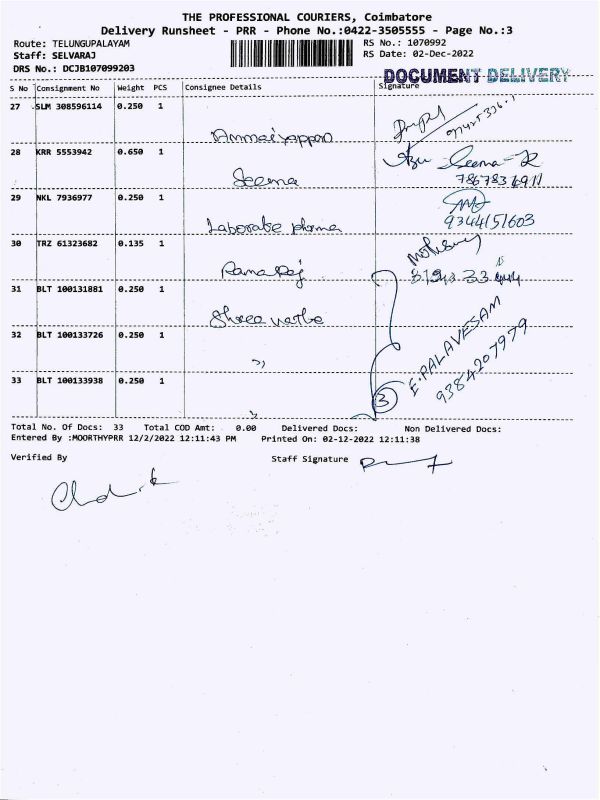 THE PROFESSIONAL COURIERS, Coimbatore
Delivery Runsheet - PRR - Phone No.:0422-3505555 - Page No.:3
Route: TELUNGUPALAYAM
RS No.: 1070992
Staff: SELVARAJ
RS Date: 02-Dec-2022
DRS No.: DCJB107099203
DOCUMENT DELIVERY
S No Consignment No Weight PCS Consignee Details Signature
27 SLM 308596114 0.250 1
28 KRR 5553942 0.650 1
Seema Seema R
29 NKL 7936977 0.250 1
9344151603
30 TRZ 61323682 0.135 1
Rama Raj
31 BLT 100131881 0.250 1
32 BLT 100133726 0.250 1
33 BLT 100133938 0.250 1
3
E. PALAVESAM
9384207979
Total No. Of Docs: 33 Total COD Amt: 0.00 Delivered Docs: Non Delivered Docs:
Entered By :MOORTHYPRR 12/2/2022 12:11:43 PM Printed On: 02-12-2022 12:11:38
Verified By Staff Signature